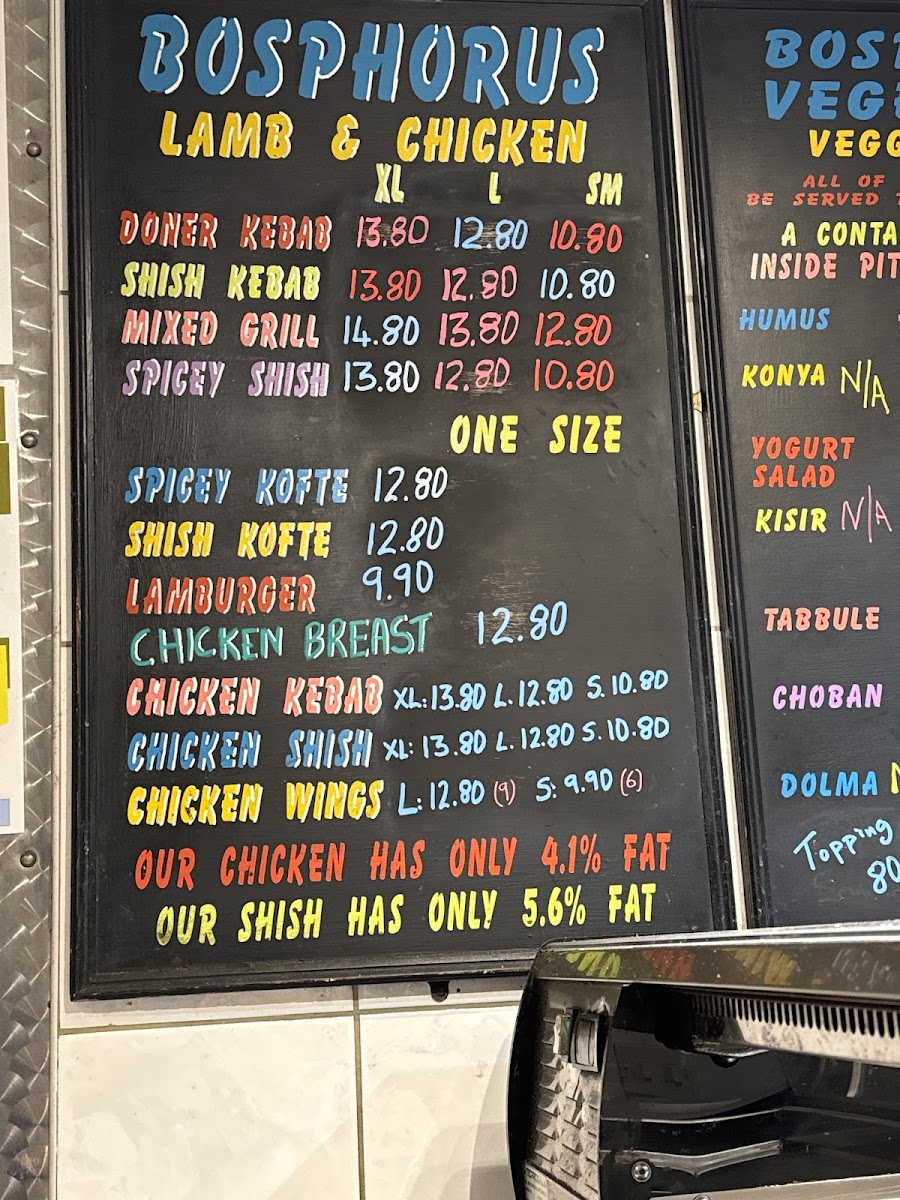 BOSPHORUS
LAMB & CHICKEN
XL L SM
DONER KEBAB 13.80 12.80 10.80
SHISH KEBAB 13.80 12.80 10.80
MIXED GRILL 14.80 13.80 12.80
SPICEY SHISH 13.80 12.80 10.80
ONE SIZE
SPICEY KOFTE 12.80
SHISH KOFTE 12.80
LAMBURGER 9.90
CHICKEN BREAST 12.80
CHICKEN KEBAB XL: 13.80 L. 12.80 S. 10.80
CHICKEN SHISH XL: 13.80 L. 12.80 S. 10.80
CHICKEN WINGS L: 12.80 (9) S: 9.90 (6)
OUR CHICKEN HAS ONLY 4.1% FAT
OUR SHISH HAS ONLY 5.6% FAT
BOSP
VEGE
VEGG
ALL OF
BE SERVED
A CONTA
INSIDE PIT
HUMUS
KONYA N/A
YOGURT
SALAD
KISIR N/A
TABBULE
CHOBAN
DOLMA
Topping
80